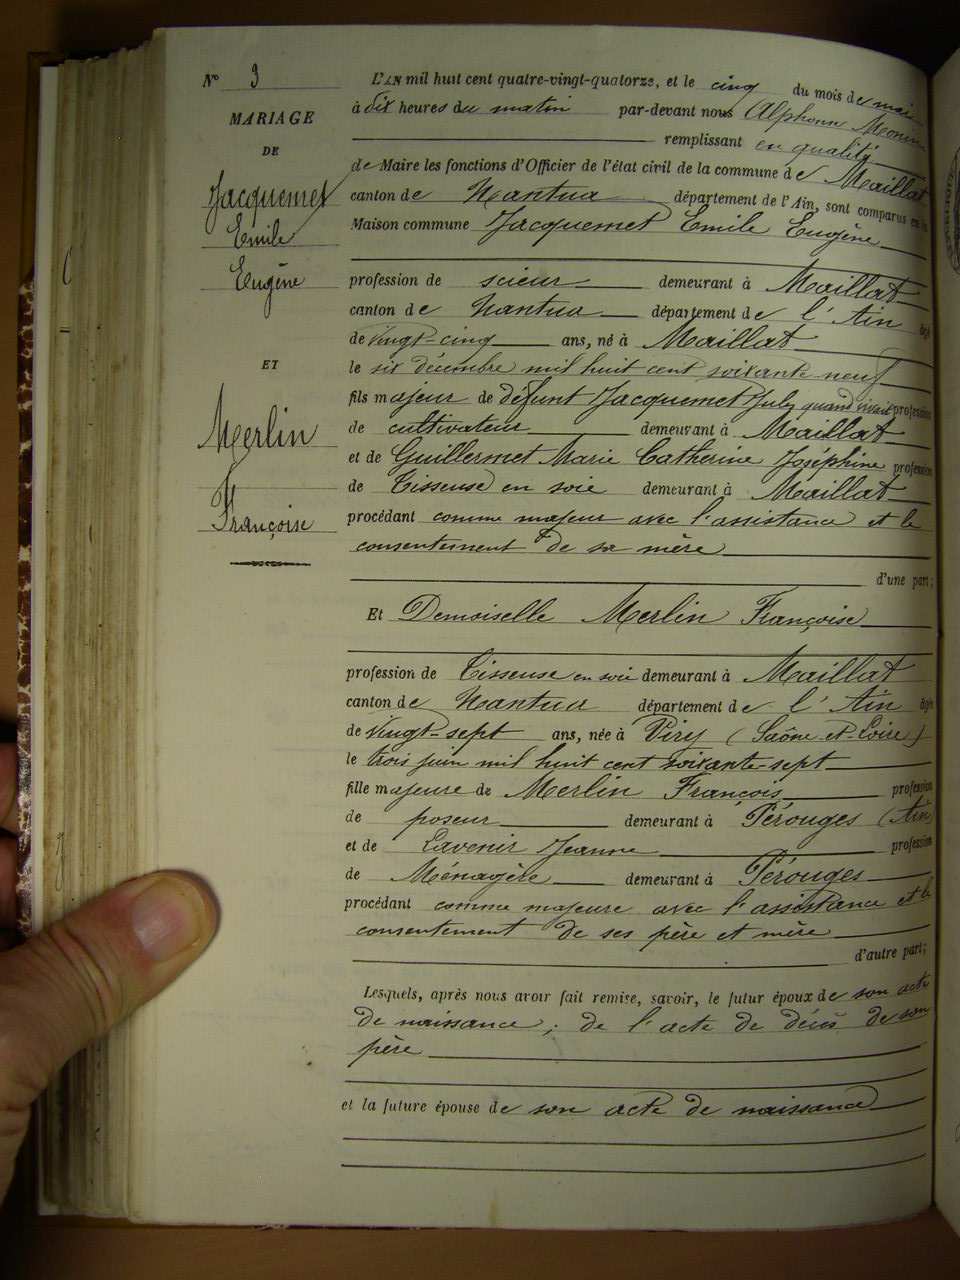 N° 3
MARIAGE
DE
Jacquemet
Emile
Eugène
ET
Merlin
Françoise
L'AN mil huit cent quatre-vingt-quatorze, et le cinq du mois de mai
à dix heures du matin par-devant nous Alphonse
remplissant en qualité
de Maire les fonctions d'Officier de l'état civil de la commune de Maillat
canton de Nantua département de l'Ain, sont comparus en la
Maison commune Jacquemet Emile Eugène
profession de scieur demeurant à Maillat
canton de Nantua département de l'Ain âgé
de vingt-cinq ans, né à Maillat
le six décembre mil huit cent soixante neuf
fils majeur de défunt Jacquemet July quand vivait profession
de cultivateur demeurant à Maillat
et de Guillermet Marie Catherine Joséphine profession
de Tisseuse en soie demeurant à Maillat
procédant comme majeur avec l'assistance et le
consentement de sa mère
d'une part;
Et Demoiselle Merlin Françoise
profession de Tisseuse en soie demeurant à Maillat
canton de Nantua département de l'Ain âgée
de vingt-sept ans, née à Viry (Saône-et-Loire)
le trois juin mil huit cent soixante-sept
fille majeure de Merlin François profession
de poseur demeurant à Pérouges (Ain)
et de Lavenir Jeanne profession
de Ménagère demeurant à Pérouges
procédant comme majeure avec l'assistance et le
consentement de ses père et mère
d'autre part;
Lesquels, après nous avoir fait remise, savoir, le futur époux de son acte
de naissance; de l'acte de décès de son
père
et la future épouse de son acte de naissance